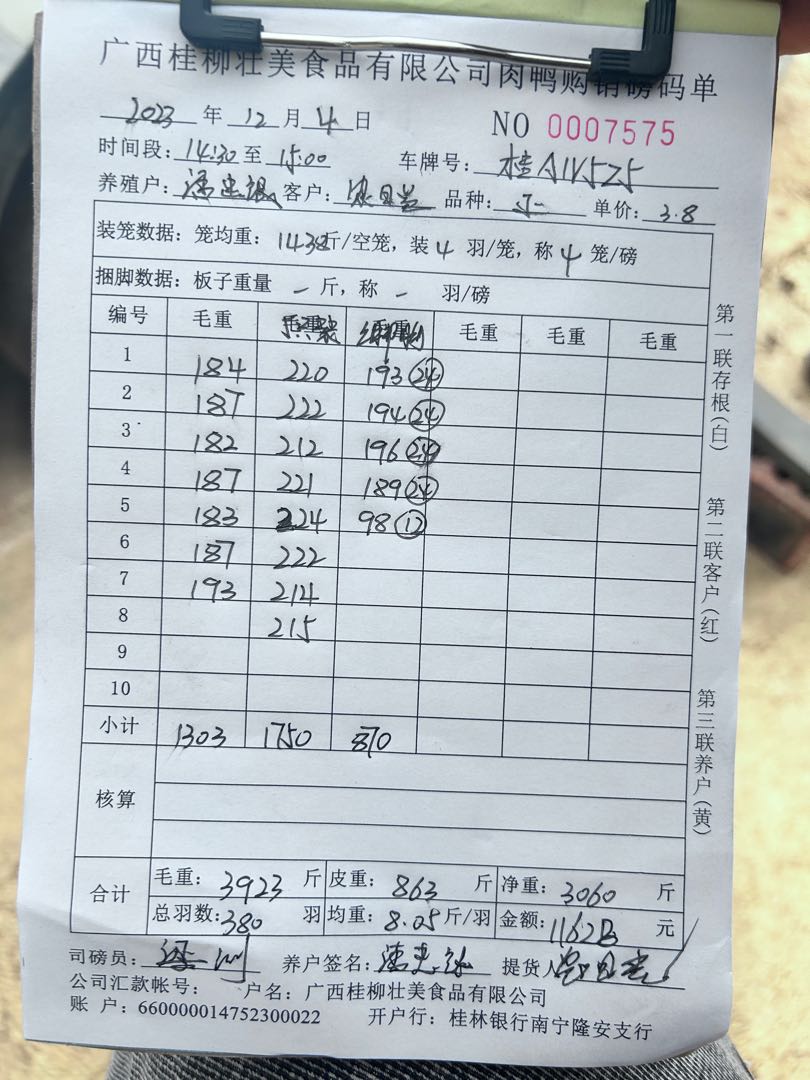 广西桂柳壮美食品有限公司肉鸭购销磅码单
2023 年 12 月 4 日 NO 0007575
时间段: 14:30 至 15:00 车牌号: 桂A1V5Z5
养殖户: 客户: 品种: 单价: 3.8
装笼数据: 笼均重: 斤/空笼, 装 4 羽/笼, 称 4 笼/磅
捆脚数据: 板子重量 - 斤, 称 - 羽/磅
编号 毛重 毛重 毛重 毛重
1 184 220 193 24
2 187 222 194 24
3 182 212 196 24
4 187 221 189 24
5 183 224 98 12
6 187 222
7 193 214
8 215
9
10
小计 1303 1750 870
核算
合计
毛重: 3923 斤 皮重: 863 斤 净重: 3060 斤
总羽数: 380 羽 均重: 8.05 斤/羽 金额: 11628 元
司磅员: 养户签名: 提货人
公司汇款帐号: 户名: 广西桂柳壮美食品有限公司
账 户: 660000014752300022 开户行: 桂林银行南宁隆安支行
第一联存根(白)
第二联客户(红)
第三联养户(黄)